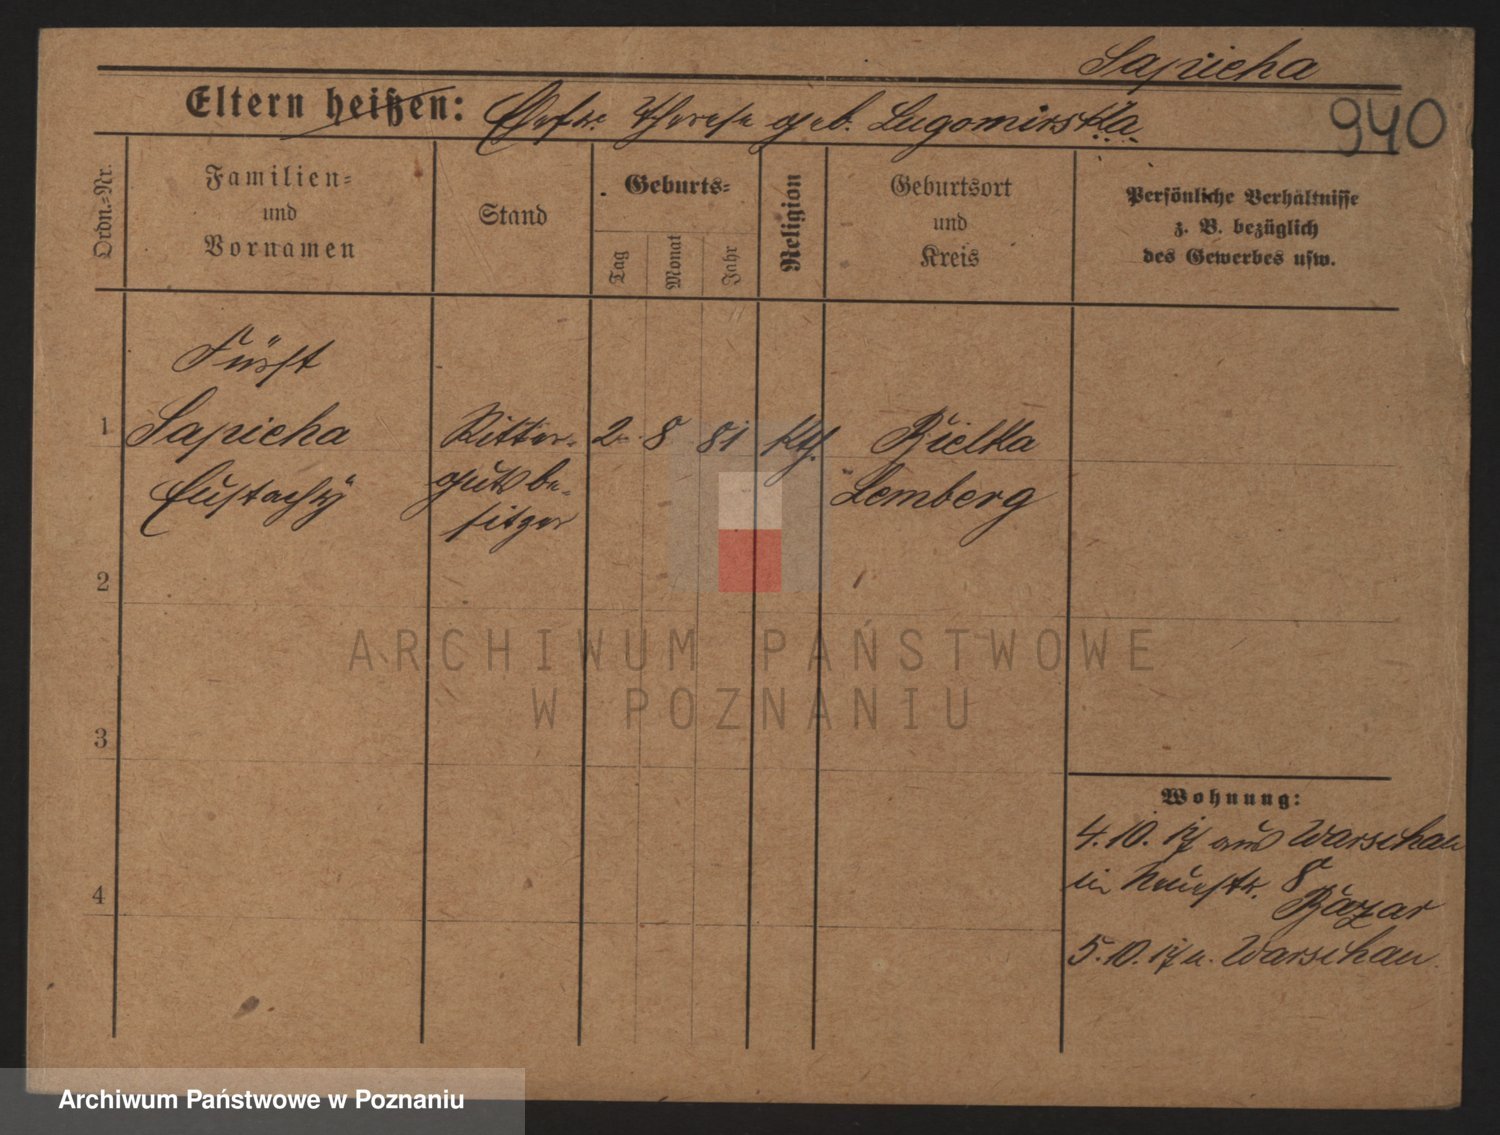 Sapieha
Eltern heißen: Ehefr. Therese geb. Lugomirska
940
Ordn.-Nr.
Familien-
und
Vornamen
Stand
Geburts-
Tag
Monat
Jahr
Religion
Geburtsort
und
Kreis
Persönliche Verhältnisse
z. B. bezüglich
des Gewerbes usw.
Fürst
1 Sapieha Ritter- 2. 8 81 kth. Bielka
Eustachy gutsbe- Lemberg
sitzer
2
ARCHIWUM PAŃSTWOWE
W POZNANIU
3
Wohnung:
4.10.17 aus Warschau
in Neuestr. 8
Bazar
4
5.10.17 n. Warschau.
Archiwum Państwowe w Poznaniu